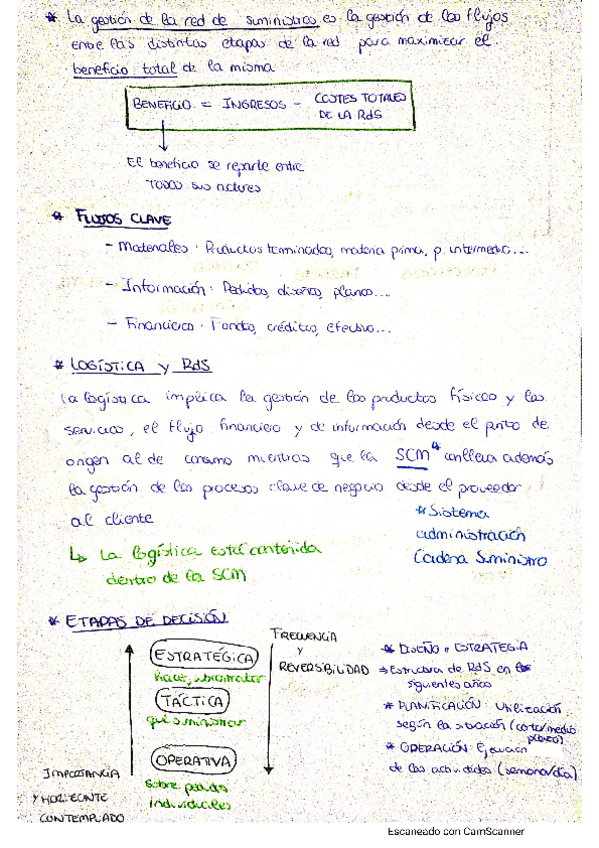 * La gestión de la red de suministros es la gestión de los flujos
entre las distintas etapas de la red para maximizar el
beneficio total de la misma
BENEFICIO = INGRESOS - COSTES TOTALES
DE LA RdS
El beneficio se reparte entre
TODOS sus actores
* FLUJOS CLAVE
- Materiales · Productos terminados, materia prima, p. intermedio...
- Información · Pedidos, diseños, planos...
- Financieros · Fondos, créditos, efectivo...
* LOGÍSTICA y RdS
La logística implica la gestión de los productos físicos y los
servicios, el flujo financiero y de información desde el punto de
origen al de consumo mientras que la SCM* conlleva además
la gestión de los procesos clave de negocio desde el proveedor
al cliente
* Sistema
administración
Cadena Suministro
↳ La logística está contenida
dentro de la SCM
* ETAPAS DE DECISIÓN
FRECUENCIA
Y
REVERSIBILIDAD
ESTRATÉGICA
hacer, subcontratar
TÁCTICA
qué suministrar
OPERATIVA
Sobre pedidos
individuales
IMPORTANCIA
Y HORIZONTE
CONTEMPLADO
* DISEÑO o ESTRATEGIA
⇒ Estructura de RdS en los
siguientes años
* PLANIFICACIÓN · Utilización
según la situación (corto/medio
plazo)
* OPERACIÓN · Ejecución
de las actividades (semana/día)
Escaneado con CamScanner